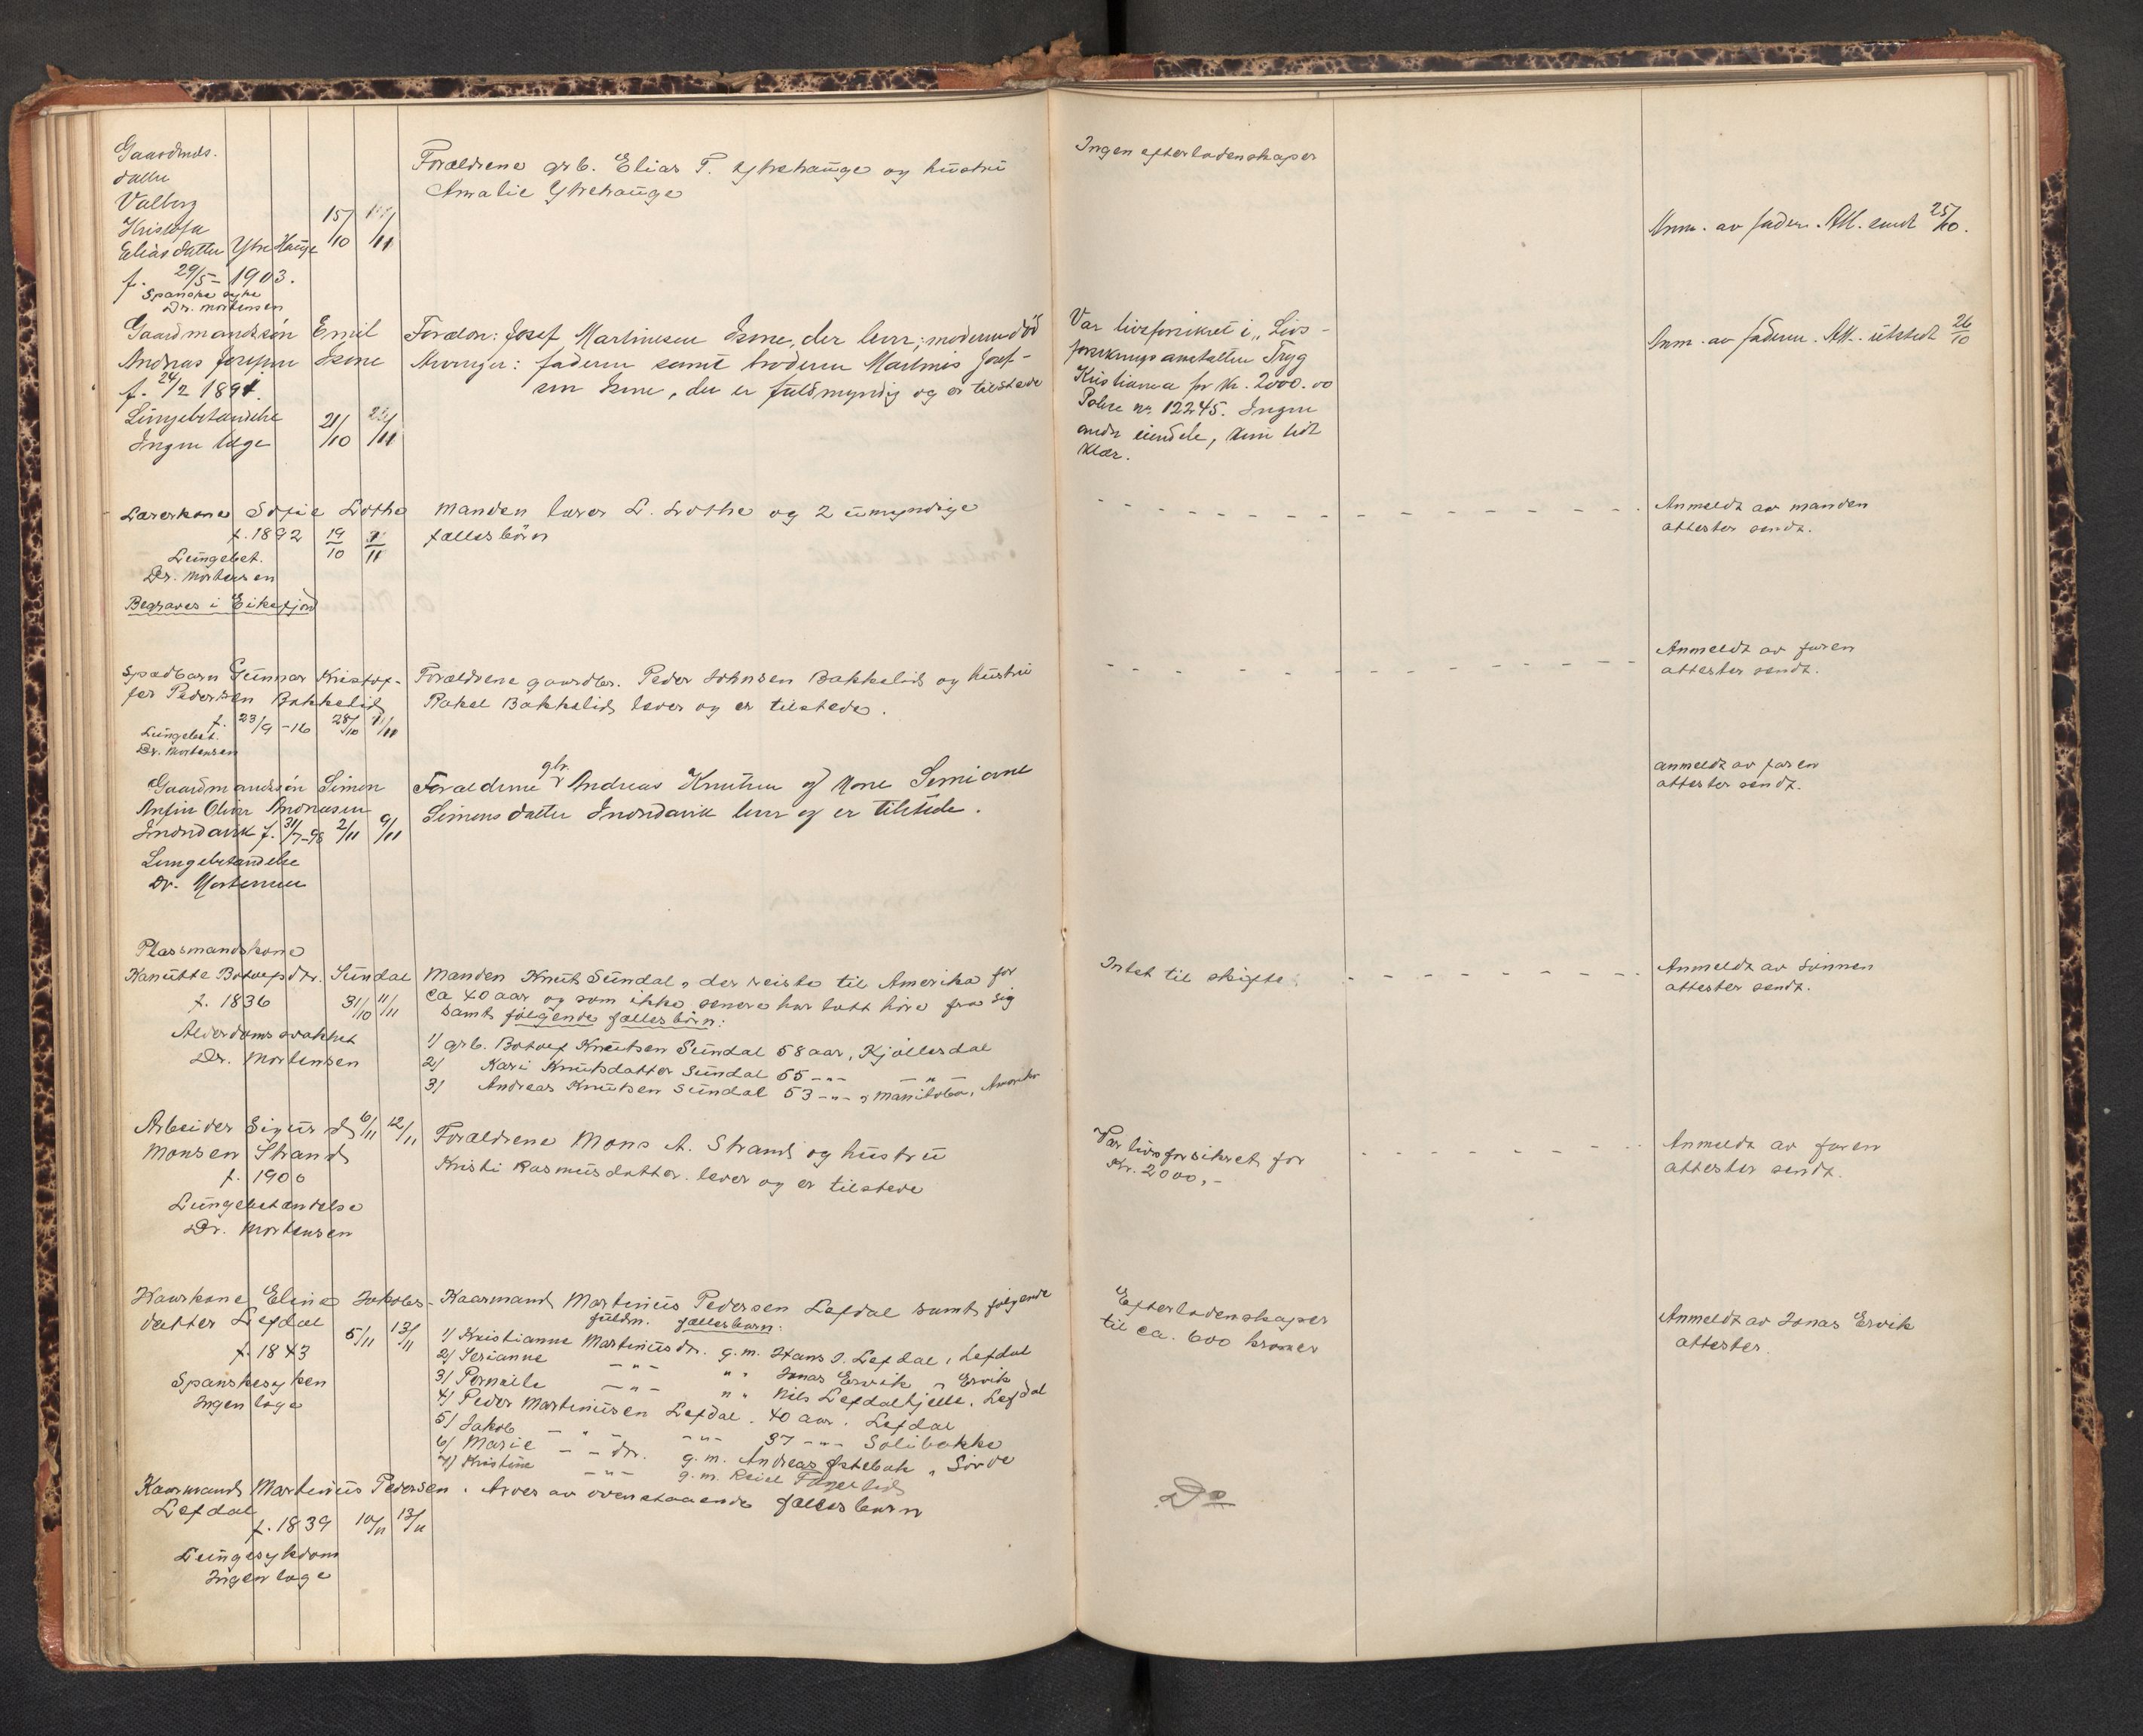 Gaardmds.
datter
Valborg
Kristofa
Eliasdatter Ytre Hauge
15/10 11/11
f. 29/5 - 1903.
Spanske syke
Dr. Mortensen
Forældrene grb. Elias P. Ytrehauge og hustru
Amalie Ytrehauge
Ingen efterladenskaper
Anm. av faderen. Att. sendt 25/10.
Gaardmandssøn Emil
Andreas Josefsen Isene
f. 24/2 1891.
Lungebetændelse
Ingen læge
21/10 /11
Forældre: Josef Martinesen Isene, der lever; moderen død
Arvinger: faderen samt broderen Martinus Josef-
sen Isene, der er fuldmyndig og er tilstede
Var livsforsikret i „Livs-
forsikringsanstalten Tryg
Kristiania for kr. 2000.00
Police nr. 12245. Ingen
andre eiendele, kun lidt
klær.
Anm. av faderen. Att. utstedt 26/10
Lærerkone Sofie Lothe
f. 1892 19/10 /11
Lungebet.
Dr. Mortensen
Begraves i Eikefjord
Manden lærer L. Lothe og 2 umyndige
fællesbörn
Anmeldt av manden
attester sendt.
Spædbarn Gunnar Kristof-
fer Pedersen Bakkelid
f. 23/9 - 16 28/10 /11
Lungebet.
Dr. Mortensen
Forældrene gaardbr. Peder Johnsen Bakkelid og hustru
Rakel Bakkelid lever og er tilstede.
Anmeldt av faren
attester sendt.
Gaardmandssön Simon
Anfin Oliver Andreasen
Inondarik f. 31/7-98 2/11 9/11
Lungebetændelse
Dr. Mortensen
Forældrene gbr. Andreas Knutsen og Kone Semiane
Simonsdatter Inondarik lever og er tilstede.
anmeldt av faren
attester sendt.
Plassmandskone
Kanutte Botolfsdtr. Sundal
f. 1836 31/10 11/11
Alderdomssvakhet
Dr. Mortensen
Manden Knut Sundal, der reiste til Amerika for
ca 40 aar og som ikke senere har latt höre fra sig
samt følgende fællesbörn:
1/ grb. Botolf Knutsen Sundal 58 aar, Kjöllesdal
2/ Kari Knutsdatter Sundal 55 -"- -"-
3/ Andreas Knutsen Sundal 53 -"-, Manitoba, Amerika
Intet til skifte.
Anmeldt av sönnen
attester sendt.
Arbeider Sigurd 6/11 12/11
Monsen Strand
f. 1900
Lungebetændelse
Dr. Mortensen
Forældrene Mons A. Strand og hustru
Kristi Rasmusdatter lever og er tilstede
Var livsforsikret for
Kr. 2000,-
Anmeldt av faren
attester sendt.
Kaarkone Eline Jakobs-
datter Lefdal 5/11 13/11
f. 1843
Spanskesyken
Ingen læge
Kaarmand Martinus Pedersen Lefdal samt følgende
fuldm. fællesbarn:
1/ Kristianne Martinusdr. g.m. Hans J. Lefdal, Lefdal
2/ Serianne -"- " " Jonas Ervik, Ervik
3/ Pernille -"- " " Nils Lefdalhjelle, Lefdal
4/ Peder Martinusen Lefdal. 40 aar. Lefdal
5/ Jakob -"- -"- 37 -"- Solibakke
6/ Marie -"- dr. g.m. Andreas Østebak, Sörde
7/ Kristine -"- g.m. Reiel Fagerlid
Efterladenskaper
til ca. 600 kroner
Anmeldt av Jonas Ervik
attester.
Kaarmand Martinus Pedersen
Lefdal
f. 1839 10/11 13/11
Lungesykdom
Ingen læge
Arves av ovenstaaende fællesbarn
Do